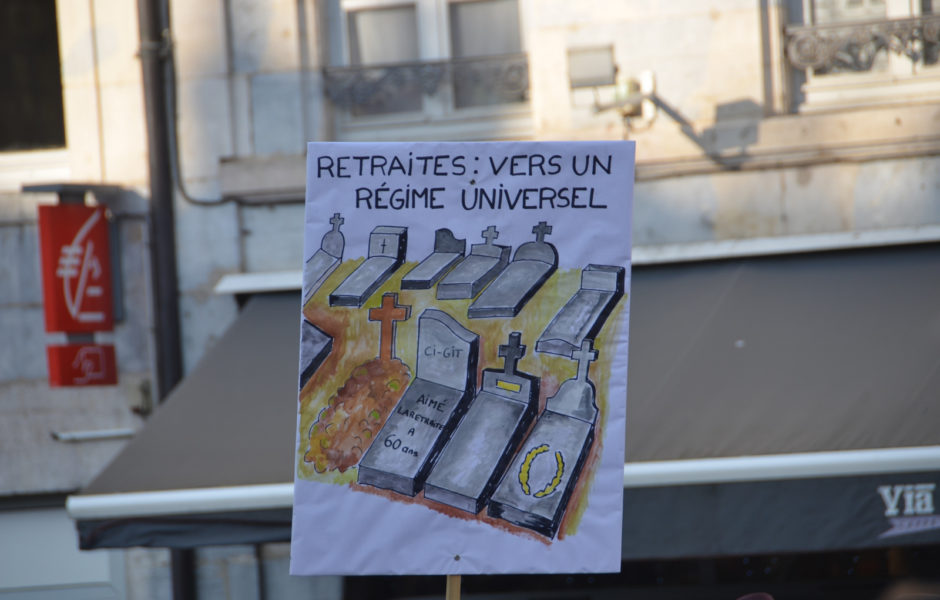 RETRAITES : VERS UN
RÉGIME UNIVERSEL
CI-GIT
AIMÉ
LARETRAITE
A
60 ans
Via